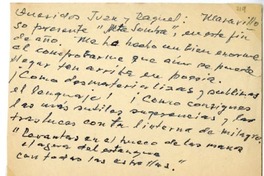 Queridos Juan y Raquel: Maravillo
so presente "Alta Sombra", en este fin
de año. Me ha hecho un bien enorme
al comprobarme que aún se puede
llegar tan arriba en poesía.
¡Cómo desmaterializas y sublimas
el lenguaje! ¡Cómo consigues
las más sutiles sugerencias y las
trasluces con linterna de milagro.
"Levantas en el hueco de las manos
el agua del estanque
con todas las estrellas."